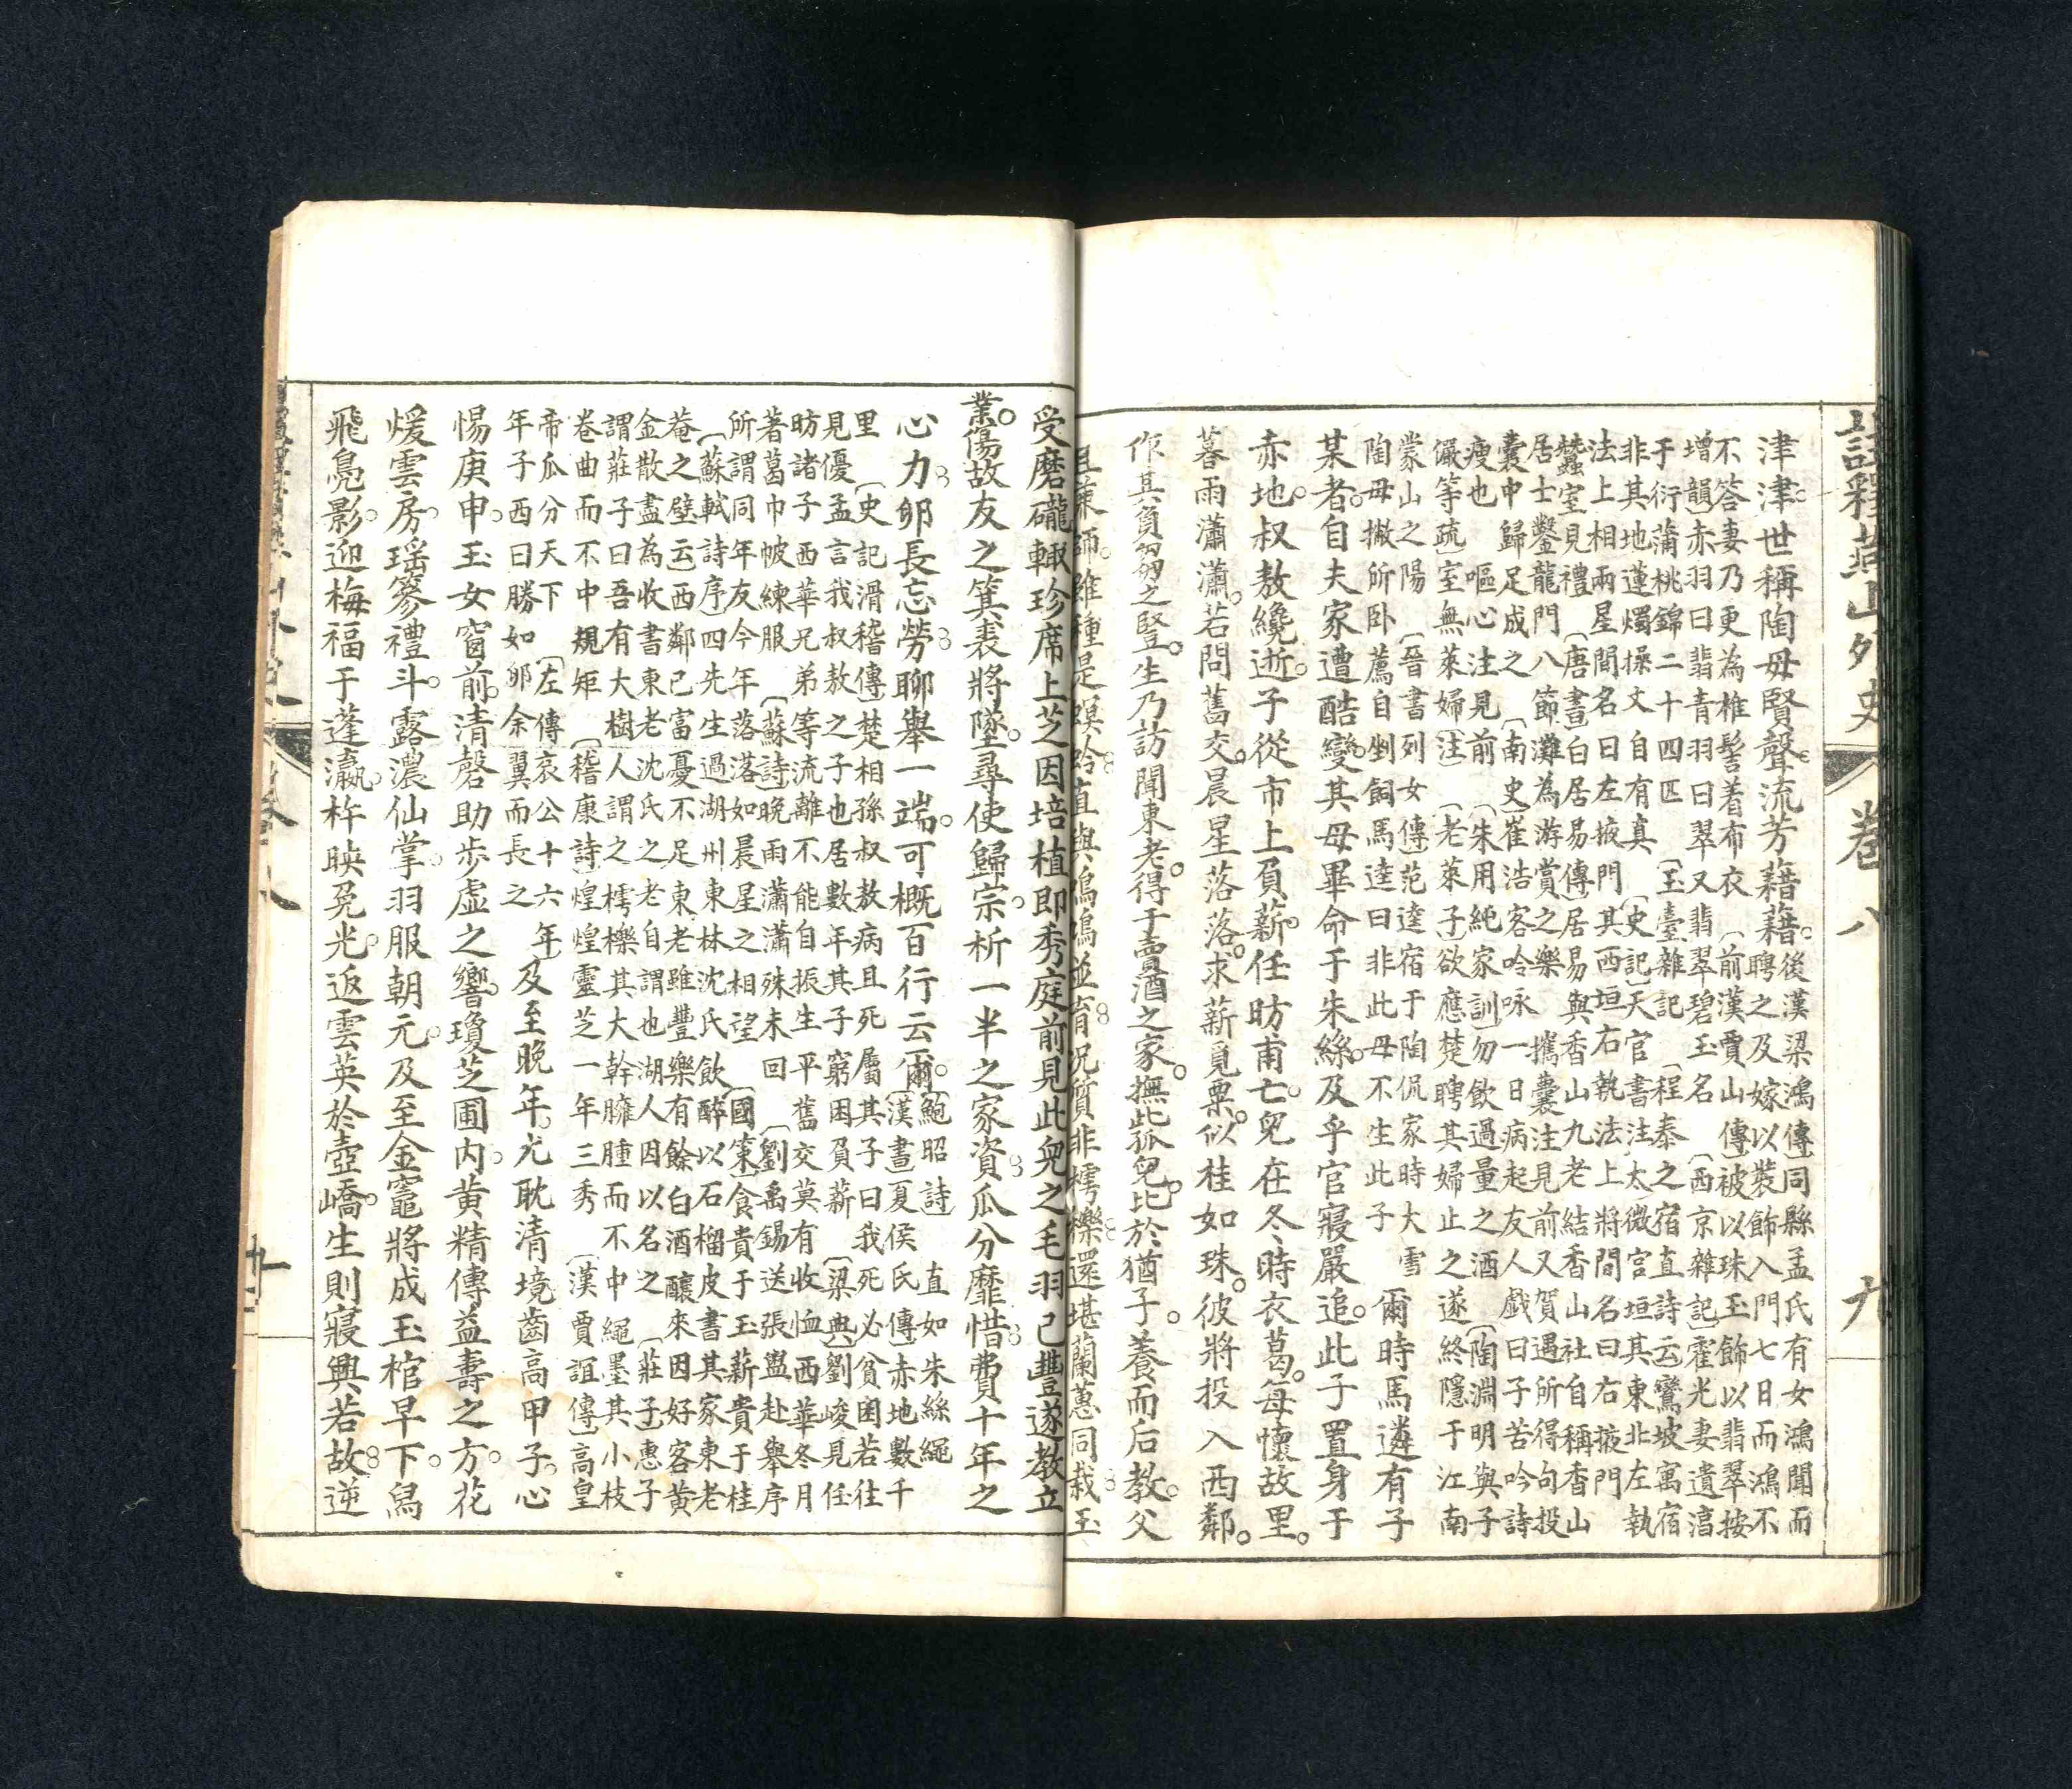 註釋燕山外史 卷八 九
津津。世稱陶母賢聲。流芳藉藉。
後漢梁鴻傳]同縣孟氏有女鴻聞而
聘之及嫁以裝飾入門七日而鴻不
不答妻乃更為椎髻着布衣 [前漢賈山傳]被以珠玉飾以翡翠按
增韻]赤羽曰翡青羽曰翠又翡翠碧玉名 [西京雜記]霍光妻遺淳
于衍蒲桃錦二十四匹 [玉臺雜記] [程泰之宿直詩云鸞坡寓宿
非其地蓮燭操文自有真 [史記]天官書注太微宮垣其東北左執
法上相兩星間名曰左掖門其西垣右執法上將間名曰右掖門
蠶室見禮 [唐書]白居易傳]居易與香山九老結香山社自稱香山
居士鑿龍門八節灘為游賞之樂 攜囊注見前又賀遇所得句投
囊中歸足成之 [南史]崔浩客吟咏一日病起友人戲曰子苦吟詩
瘦也 嘔心注見前 [朱用純家訓]勿飲過量之酒 [陶淵明與子
儼等疏]室無萊婦[注] [老萊子]欲應楚聘其婦止之遂終隱于江南
蒙山之陽 [晉書列女傳]范逵宿于陶侃家時大雪
陶母撤所卧薦自剉飼馬逵曰非此母不生此子
爾時馬遴有子
某者。自夫家遭酷變。其母畢命于朱絲。及乎官寢嚴追。此子置身于
赤地。叔敖纔逝。子從市上負薪。任昉甫亡。兒在冬時衣葛。每懷故里。
暮雨瀟瀟。若問舊交。晨星落落。求薪覓粟。似桂如珠。彼將投入西鄰。
作其負芻之豎。生乃訪聞東老。得于賣酒之家。撫此孤兒。比於猶子。養而后教。父
且兼師。雖種是螟蛉。直與鳲鳩並育。况質非樗櫟。還堪蘭蕙同栽。玉
受磨礲輒珍席上芝因培植即秀庭前見此兒之毛羽已豐遂教立
業。傷故友之箕裘將墜。尋使歸宗。析一半之家資。瓜分靡惜。費十年之
心力。卵長忘勞。聊舉一端。可概百行云爾。
[鮑昭詩] 直如朱絲繩
[漢書]夏侯氏傳]赤地數千
里 [史記滑稽傳]楚相孫叔敖病且死屬其子曰我死必貧困若往
見優孟言我叔敖之子也居數年其子窮困負薪 [梁典]劉峻見任
昉諸子西華兄弟等流離不能自振生平舊交莫有收恤西華冬月
著葛巾帔練服 [蘇詩]晚雨瀟瀟殊未回 [劉禹錫送張盥赴舉序
所謂同年友今年落落如晨星之相望 [國策]食貴于玉薪貴于桂
[蘇軾詩序]四先生過湖州東林沈氏飲醉以石榴皮書其家東老
菴之壁云西鄰已富憂不足東老雖豐樂有餘白酒釀來因好客黃
金散盡為收書東老沈氏之老自謂也湖人因以名之 [莊子]惠子
謂莊子曰吾有大樹人謂之樗櫟其大幹臃腫而不中繩墨其小枝
卷曲而不中規矩 [稽康詩]煌煌靈芝一年三秀 [漢賈誼傳]高皇
帝瓜分天下 [左傳哀公十六年]
年子西曰勝如卵余翼而長之
及至晚年。尤耽清境齒高甲子。心
惕庚申。玉女窗前。清磬助步虛之響。瓊芝圃內。黃精傳益壽之方。花
煖雲房。瑤篸禮斗。露濃仙掌。羽服朝元。及至金竈將成玉棺早下。舄
飛鳧影。迎梅福于蓬瀛。杵映兔光。返雲英於壺嶠。生則寢興若故逆
卷八